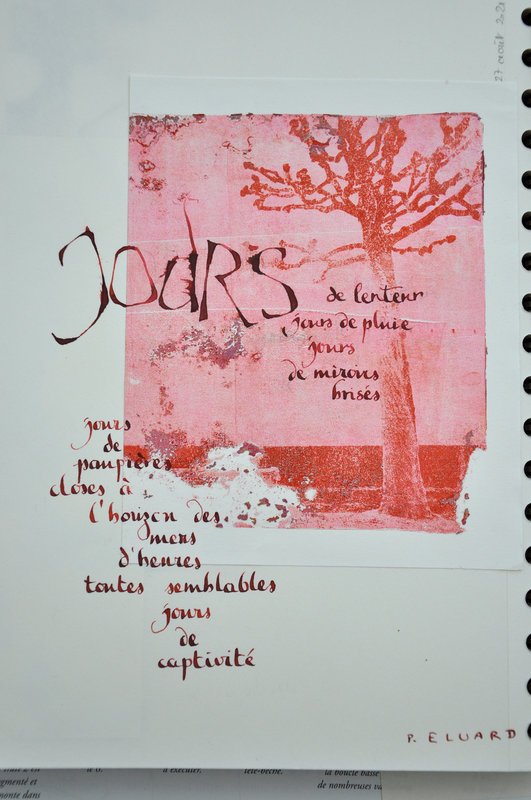 27 août 202
Jours
de lenteur
jours de pluie
jours
de miroirs
brisés
jours
de
paupières
closes à
l'horizon des
mers
d'heures
toutes semblables
jours
de
captivité
P. ELUARD
le 6.
à exécuter,
tête-bêche.
la boucle basse
gmenté et
de nombreuses va
monte dans